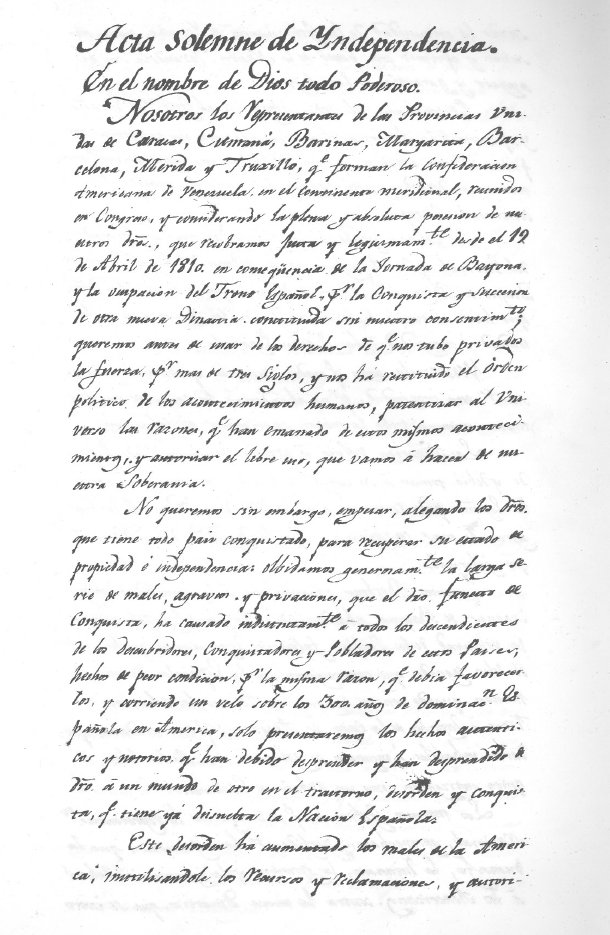 Acta Solemne de Yndependencia.
En el nombre de Dios todo Poderoso.
Nosotros los Representantes de las Provincias Vni-
das de Caracas, Cumaná, Barinas, Margarita, Bar-
celona, Merida y Truxillo, q.e forman la Confederacion
Americana de Venezuela en el Continente meridional, reunidos
en Congreso, y considerando la plena y absoluta posesion de nu-
estros dr̃os., que recobramos justa y legitimam.te desde el 19
de Abril de 1810. en conseqüencia de la Jornada de Bayona,
y la ocupacion del Trono Español, p.r la Conquista y succesion
de otra nueva Dinastia constituida sin nuestro consentim.to;
queremos antes de usar de los derechos de q.e nos tubo privados
la fuerza, p.r mas de tres siglos, y nos há restituido el órden
politico de los acontecimientos humanos, patentizar al Vni-
verso las razones, q.e han emanado de estos mismos aconteci-
mientos, y autorizar el libre uso, que vamos á hacer de nu-
estra Soberania.
No queremos sin embargo, empezar, alegando los dr̃os.
que tiene todo pais conquistado, para recuperar su estado de
propiedad é independencia: olbidamos generosam.te la larga se-
rie de males, agravios, y privaciones, que el dr̃o. funesto de
Conquista, ha causado indistintam.te á todos los descendientes
de los descubridores, Conquistadores y Pobladores de estos Paises,
hechos de peor condicion, p.r la misma razon, q.e debia favorecer-
los, y corriendo un velo sobre los 300. años de dominac.n Es-
pañola en America, solo presentaremos los hechos autenti-
cos y notorios, q.e han debido desprender y han desprendido de
dr̃o. á un mundo de otro en el trastorno, desorden y conquis-
ta, q.e tiene yá disuelta la Nacion Española.
Este desorden há aumentado los males de la Ameri-
ca, inutilisandole los recursos y reclamaciones, y autori-